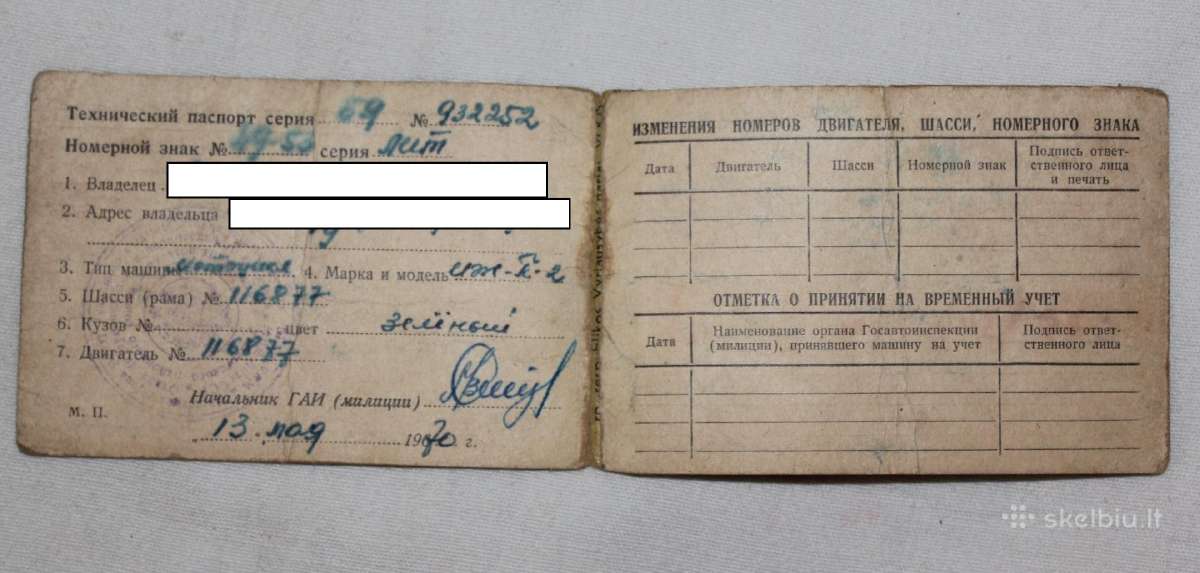 Технический паспорт серия 69 № 932252
Номерной знак № 19-53 серия лит
1. Владелец
2. Адрес владельца
3. Тип машины мотоцикл 4. Марка и модель иж-П-2
5. Шасси (рама) № 116877
6. Кузов № цвет зелёный
7. Двигатель № 116877
Начальник ГАИ (милиции)
М. П.
13 мая 1970 г.
ИЗМЕНЕНИЯ НОМЕРОВ ДВИГАТЕЛЯ, ШАССИ, НОМЕРНОГО ЗНАКА
Дата Двигатель Шасси Номерной знак Подпись ответ-
ственного лица
и печать
ОТМЕТКА О ПРИНЯТИИ НА ВРЕМЕННЫЙ УЧЕТ
Дата Наименование органа Госавтоинспекции Подпись ответ-
(милиции), принявшего машину на учет ственного лица
skelbiu.lt